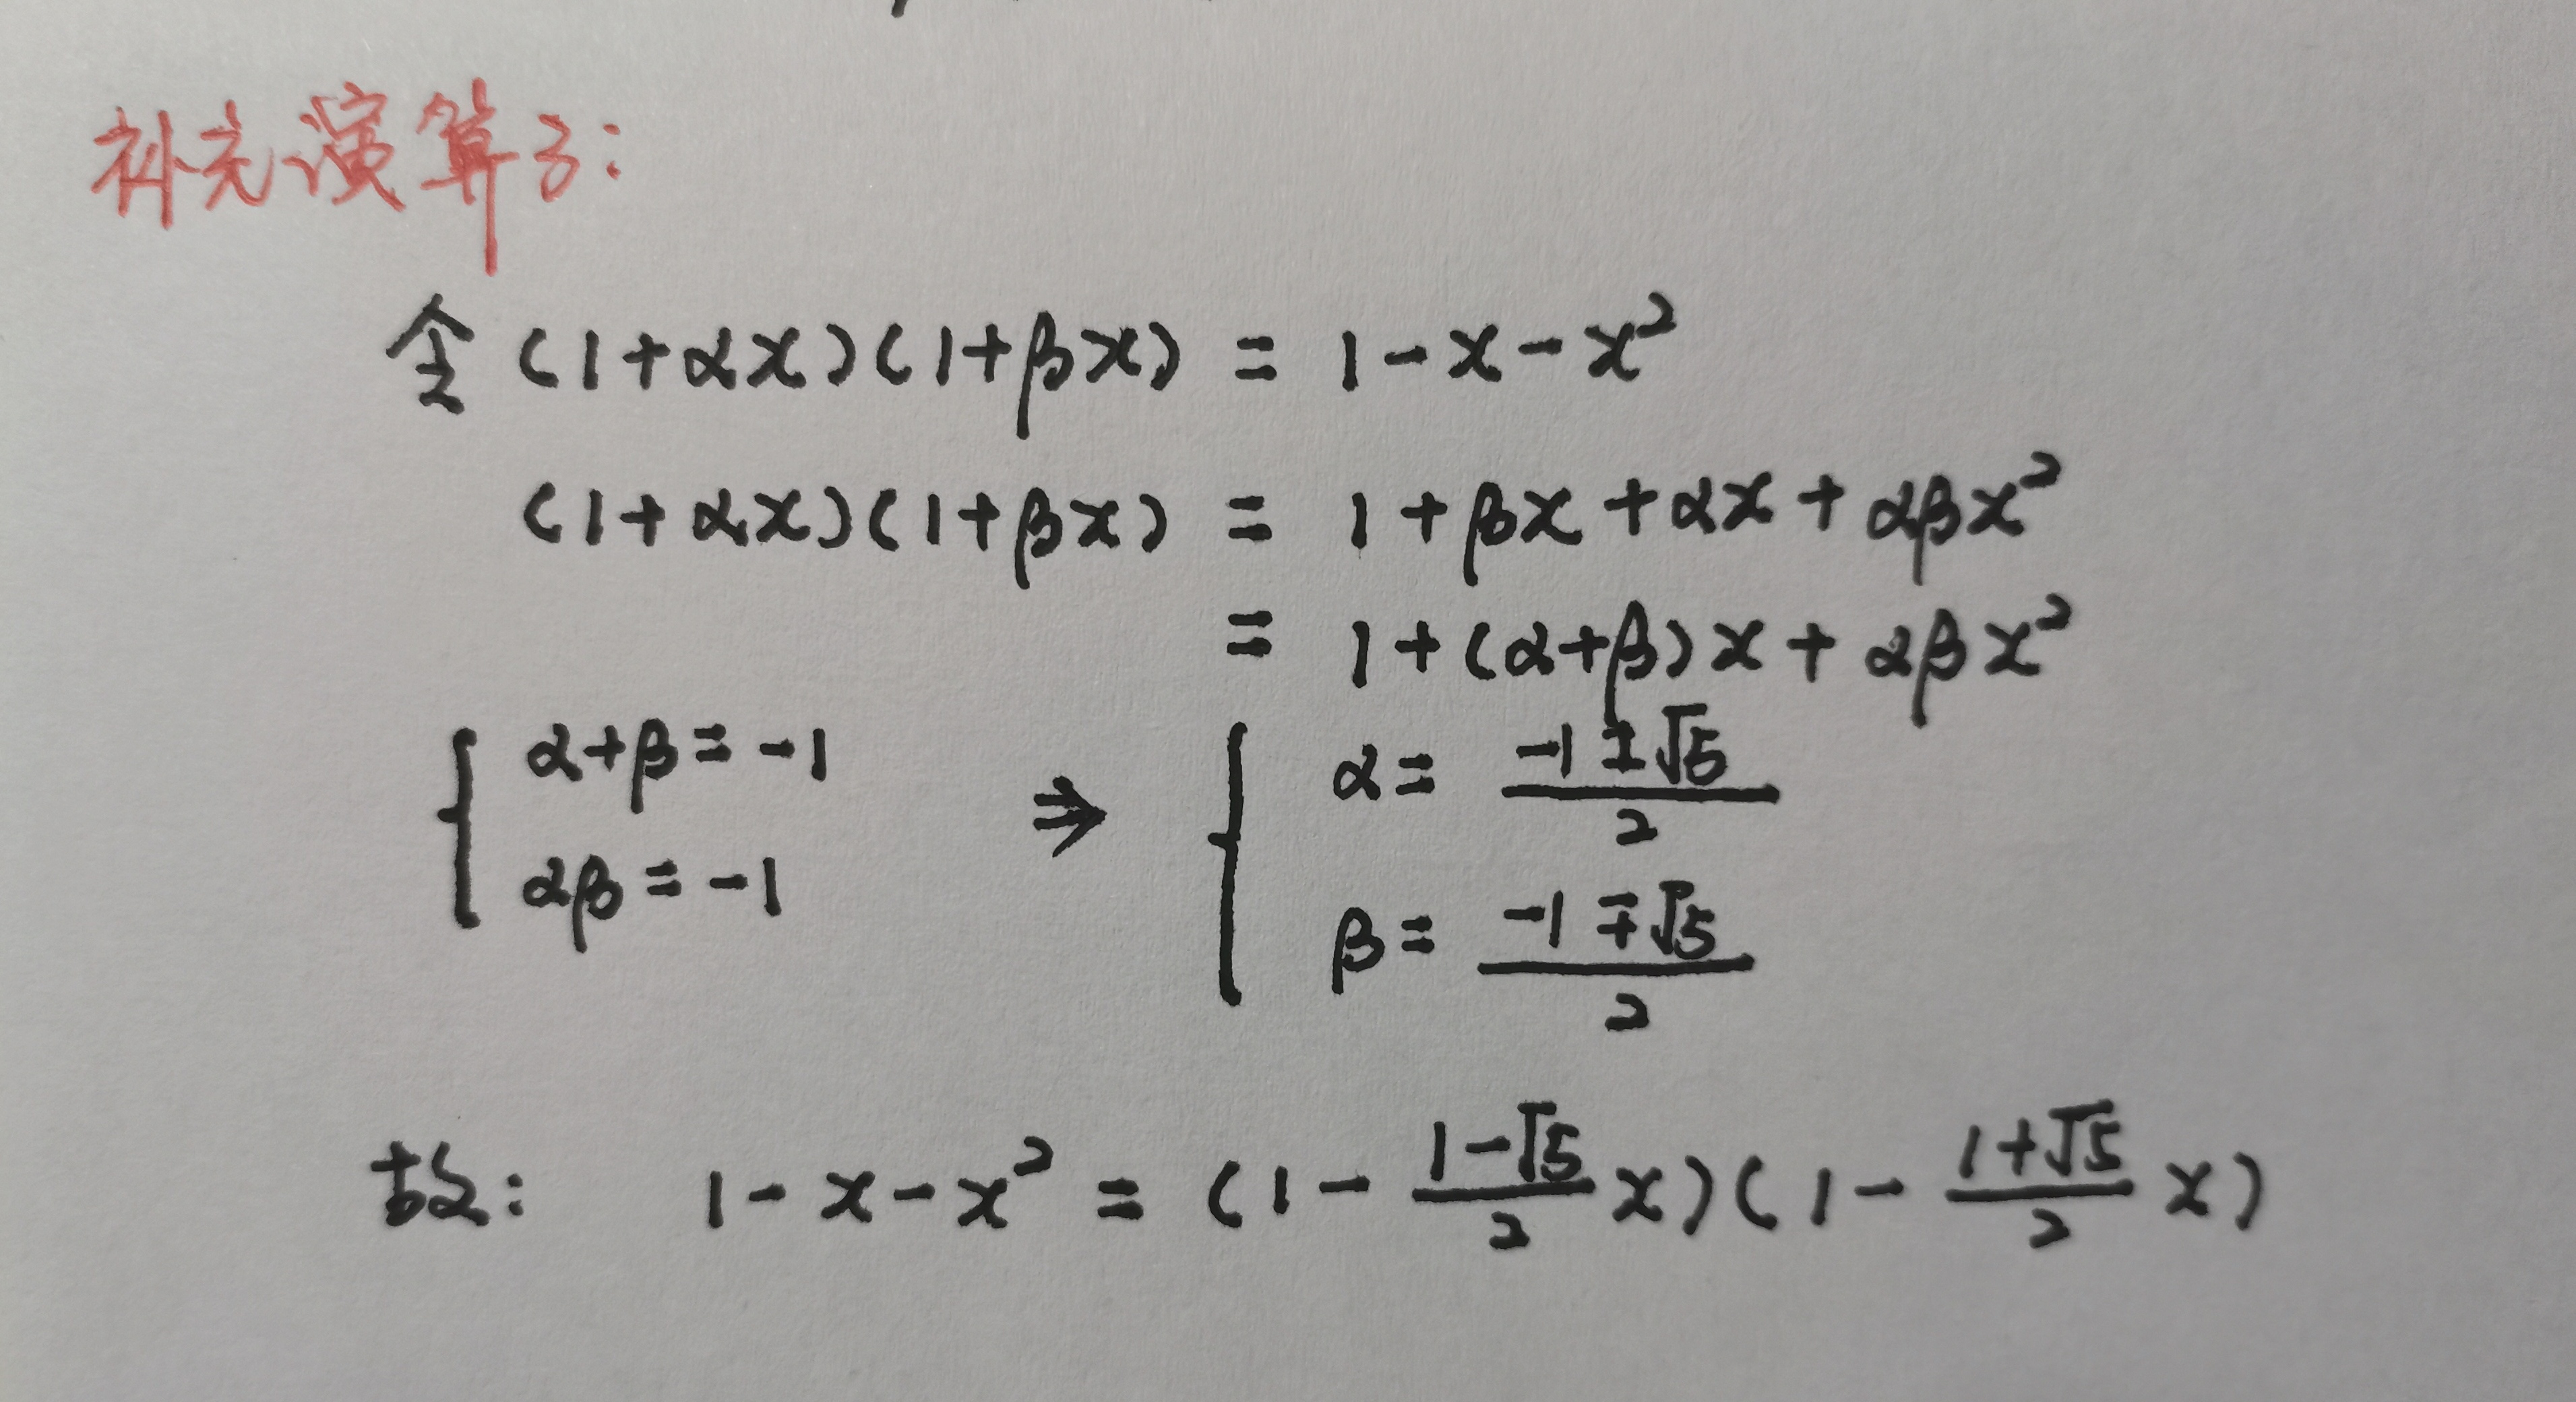 补充演算3:
令 (1+αx)(1+βx) = 1-x-x²
(1+αx)(1+βx) = 1+βx+αx+αβx²
= 1+(α+β)x+αβx²
{ α+β=-1 αβ=-1 ⇒ { α= (-1±√5)/2 β= (-1∓√5)/2
故: 1-x-x² = (1- (1-√5)/2 x)(1- (1+√5)/2 x)